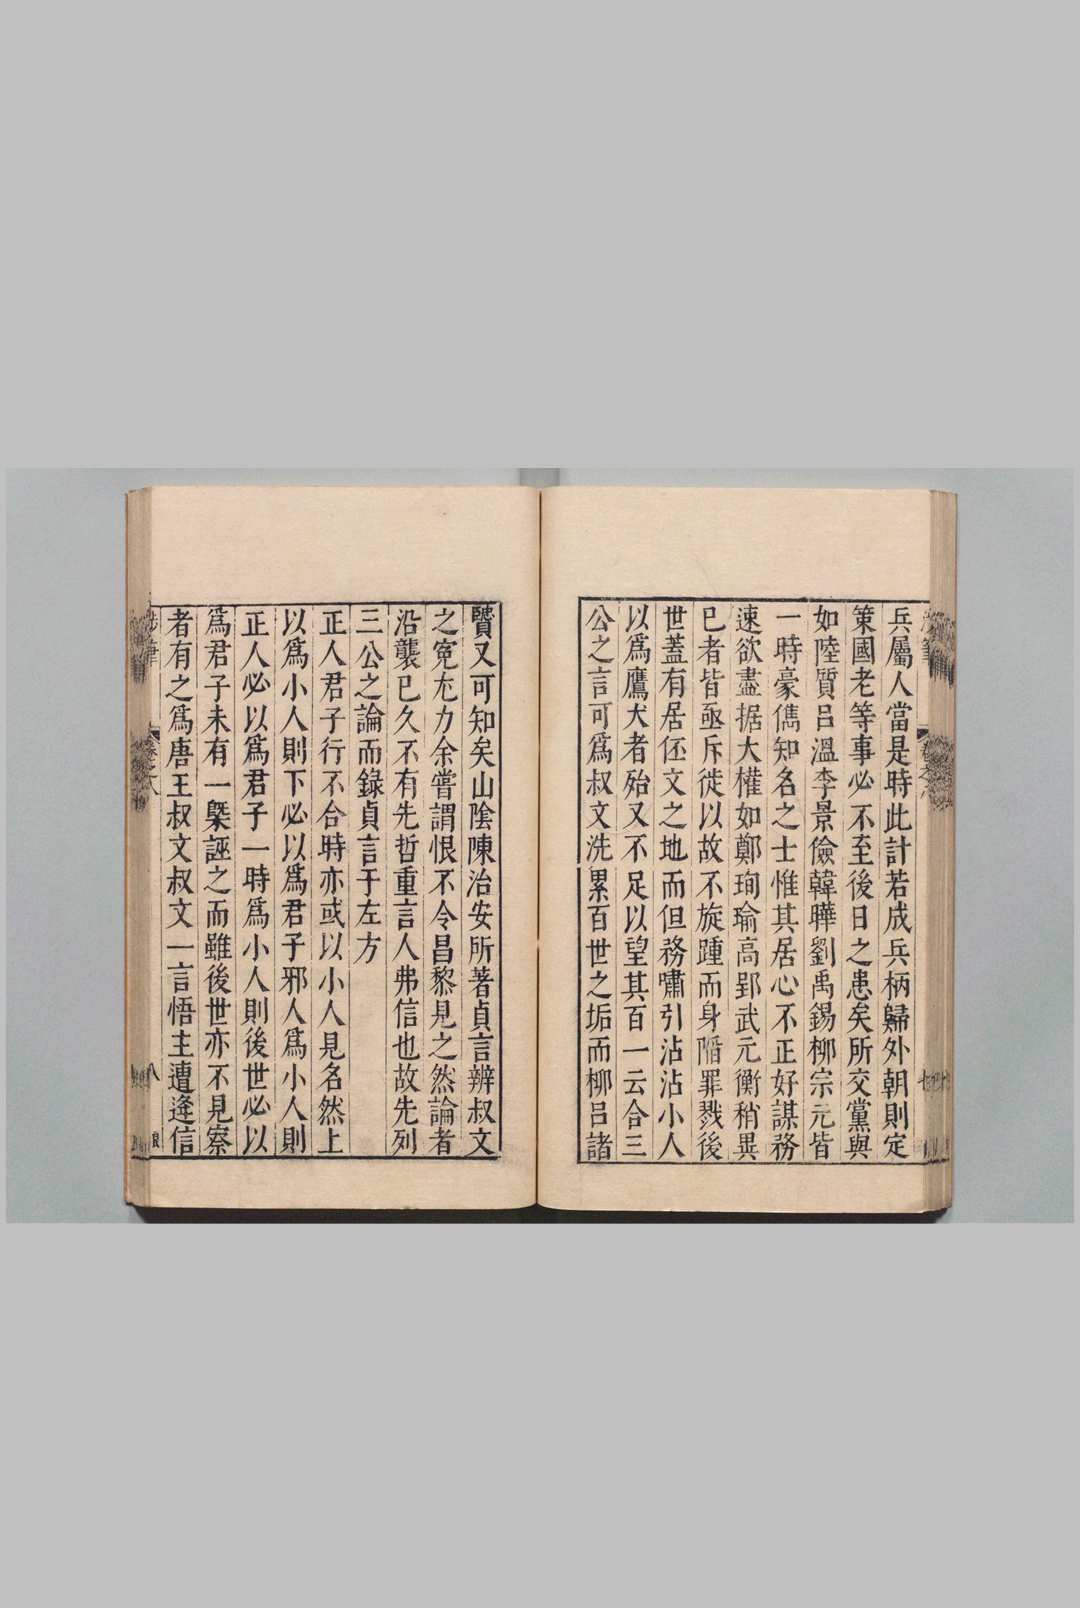 兵屬人當是時此計若成兵柄歸外朝則定
策國老等事必不至後日之患矣所交黨與
如陸質呂溫李景儉韓曄劉禹錫柳宗元皆
一時豪儁知名之士惟其居心不正好謀務
速欲盡据大權如鄭珣瑜高郢武元衡稍異
已者皆亟斥徙以故不旋踵而身陷罪戮後
世蓋有居伾文之地而但務嘯引沾沾小人
以爲鷹犬者殆又不足以望其百一云合三
公之言可爲叔文洗累百世之垢而柳呂諸
賢又可知矣山陰陳治安所著貞言辨叔文
之寃尤力余嘗謂恨不令昌黎見之然論者
沿襲已久不有先哲重言人弗信也故先列
三公之論而錄貞言于左方
正人君子行不合時亦或以小人見名然上
以爲小人則下必以爲君子邪人爲小人則
正人必以爲君子一時爲小人則後世必以
爲君子未有一槩誣之而雖後世亦不見察
者有之爲唐王叔文叔文一言悟主遭逢信
卷之八
八